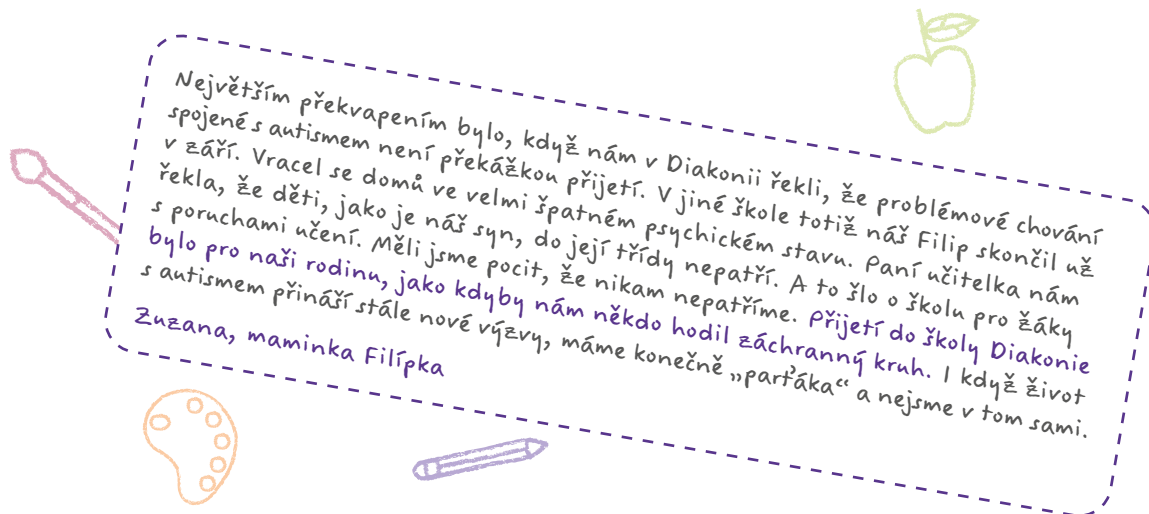 Největším překvapením bylo, když nám v Diakonii řekli, že problémové chování
spojené s autismem není překážkou přijetí. V jiné škole totiž náš Filip skončil už
v září. Vracel se domů ve velmi špatném psychickém stavu. Paní učitelka nám
řekla, že děti, jako je náš syn, do její třídy nepatří. A to šlo o školu pro žáky
s poruchami učení. Měli jsme pocit, že nikam nepatříme. Přijetí do školy Diakonie
bylo pro naši rodinu, jako kdyby nám někdo hodil záchranný kruh. I když život
s autismem přináší stále nové výzvy, máme konečně „parťáka“ a nejsme v tom sami.
Zuzana, maminka Filípka